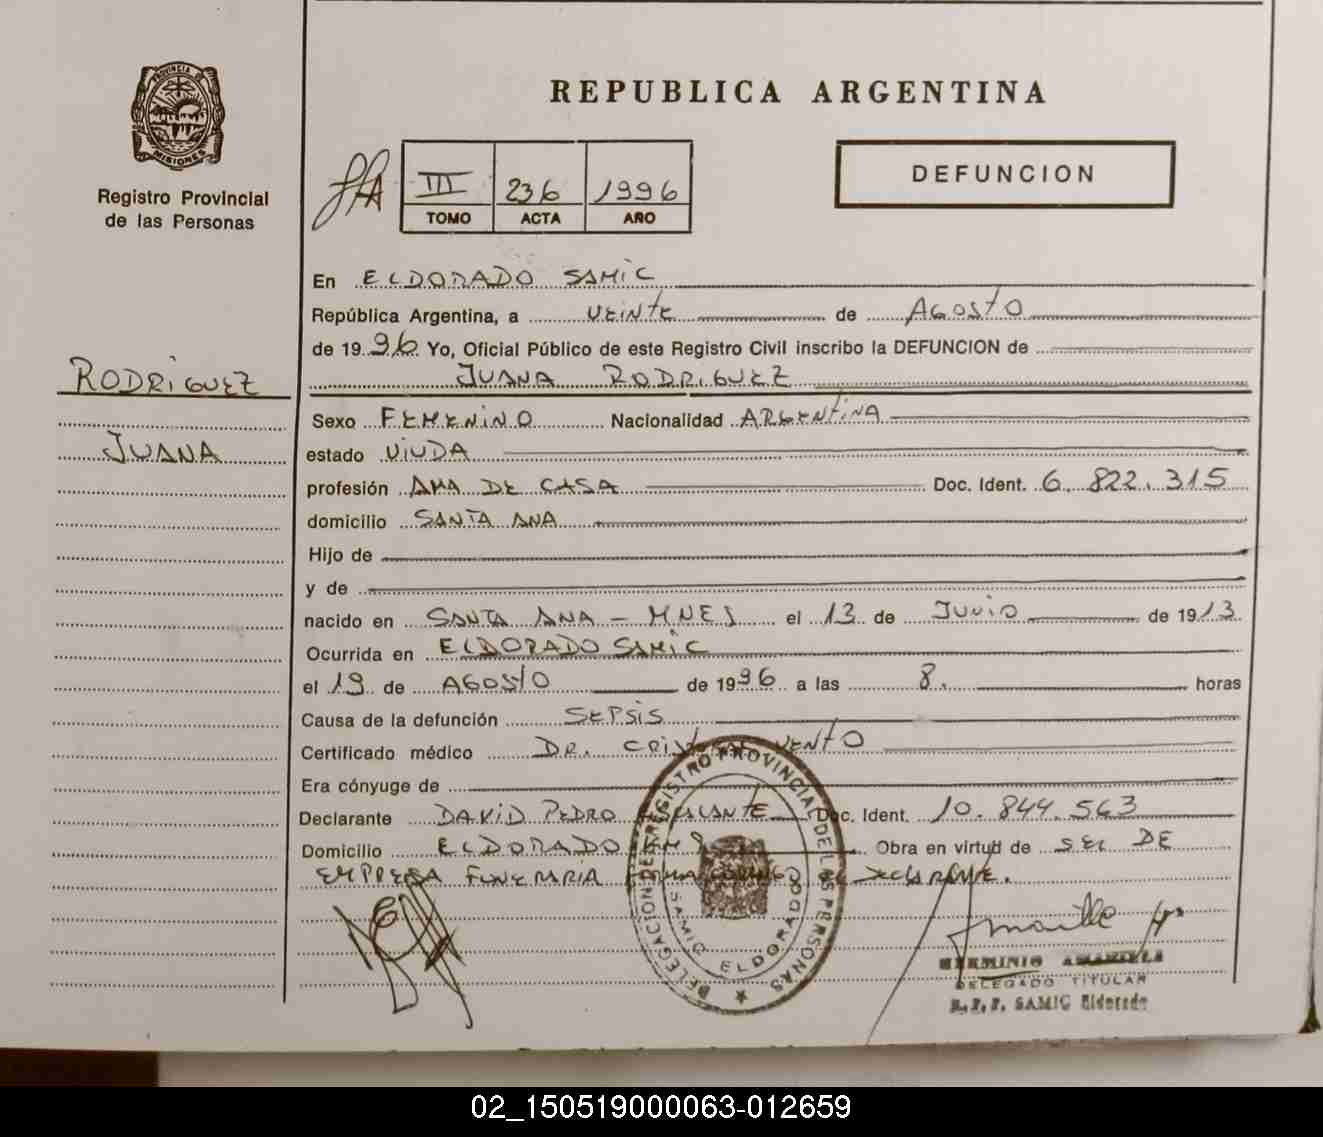 PROVINCIA DE
MISIONES
Registro Provincial
de las Personas
REPUBLICA ARGENTINA
DEFUNCION
III 236 1996
TOMO ACTA AÑO
En ELDORADO SAMIC
República Argentina, a VEINTE de AGOSTO
de 1996 Yo, Oficial Público de este Registro Civil inscribo la DEFUNCION de
JUANA RODRIGUEZ
RODRIGUEZ
JUANA
Sexo FEMENINO Nacionalidad ARGENTINA
estado VIUDA
profesión AMA DE CASA Doc. Ident. 6.822.315
domicilio SANTA ANA
Hijo de
y de
nacido en SANTA ANA - MNES el 13 de JUNIO de 1913
Ocurrida en ELDORADO SAMIC
el 19 de AGOSTO de 1996 a las 8. horas
Causa de la defunción SEPSIS
Certificado médico DR. VENTO
Era cónyuge de
Declarante DAVID PEDRO Doc. Ident. 10.844.563
Domicilio ELDORADO KM 9 Obra en virtud de SER DE
EMPRESA FUNERARIA FIRMA CONMIGO EL DECLARANTE.
DELEGACION DE REGISTRO PROVINCIAL DE LAS PERSONAS
SAMIC ELDORADO
HERMINIO AMARILLA
DELEGADO TITULAR
R.P.P. SAMIC Eldorado
02_150519000063-012659